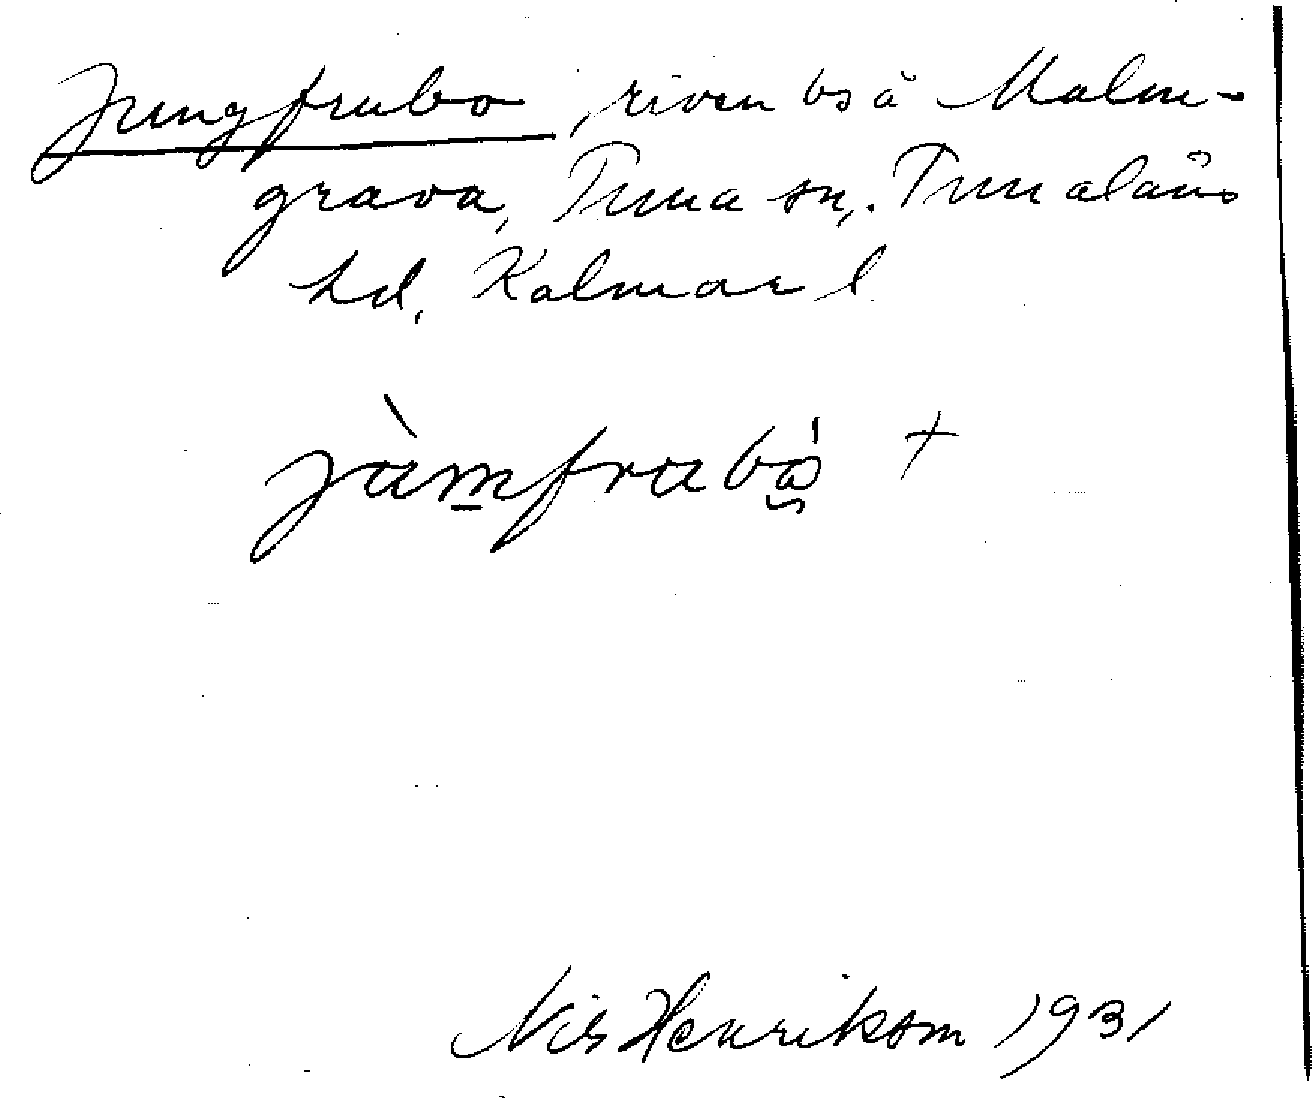 Jungfrubo, riven bs å Malm-
grava, Tuna sn, Tunaläns
hd, Kalmar l
jùm̲frubå̰ +
Nils Henrikson 1931